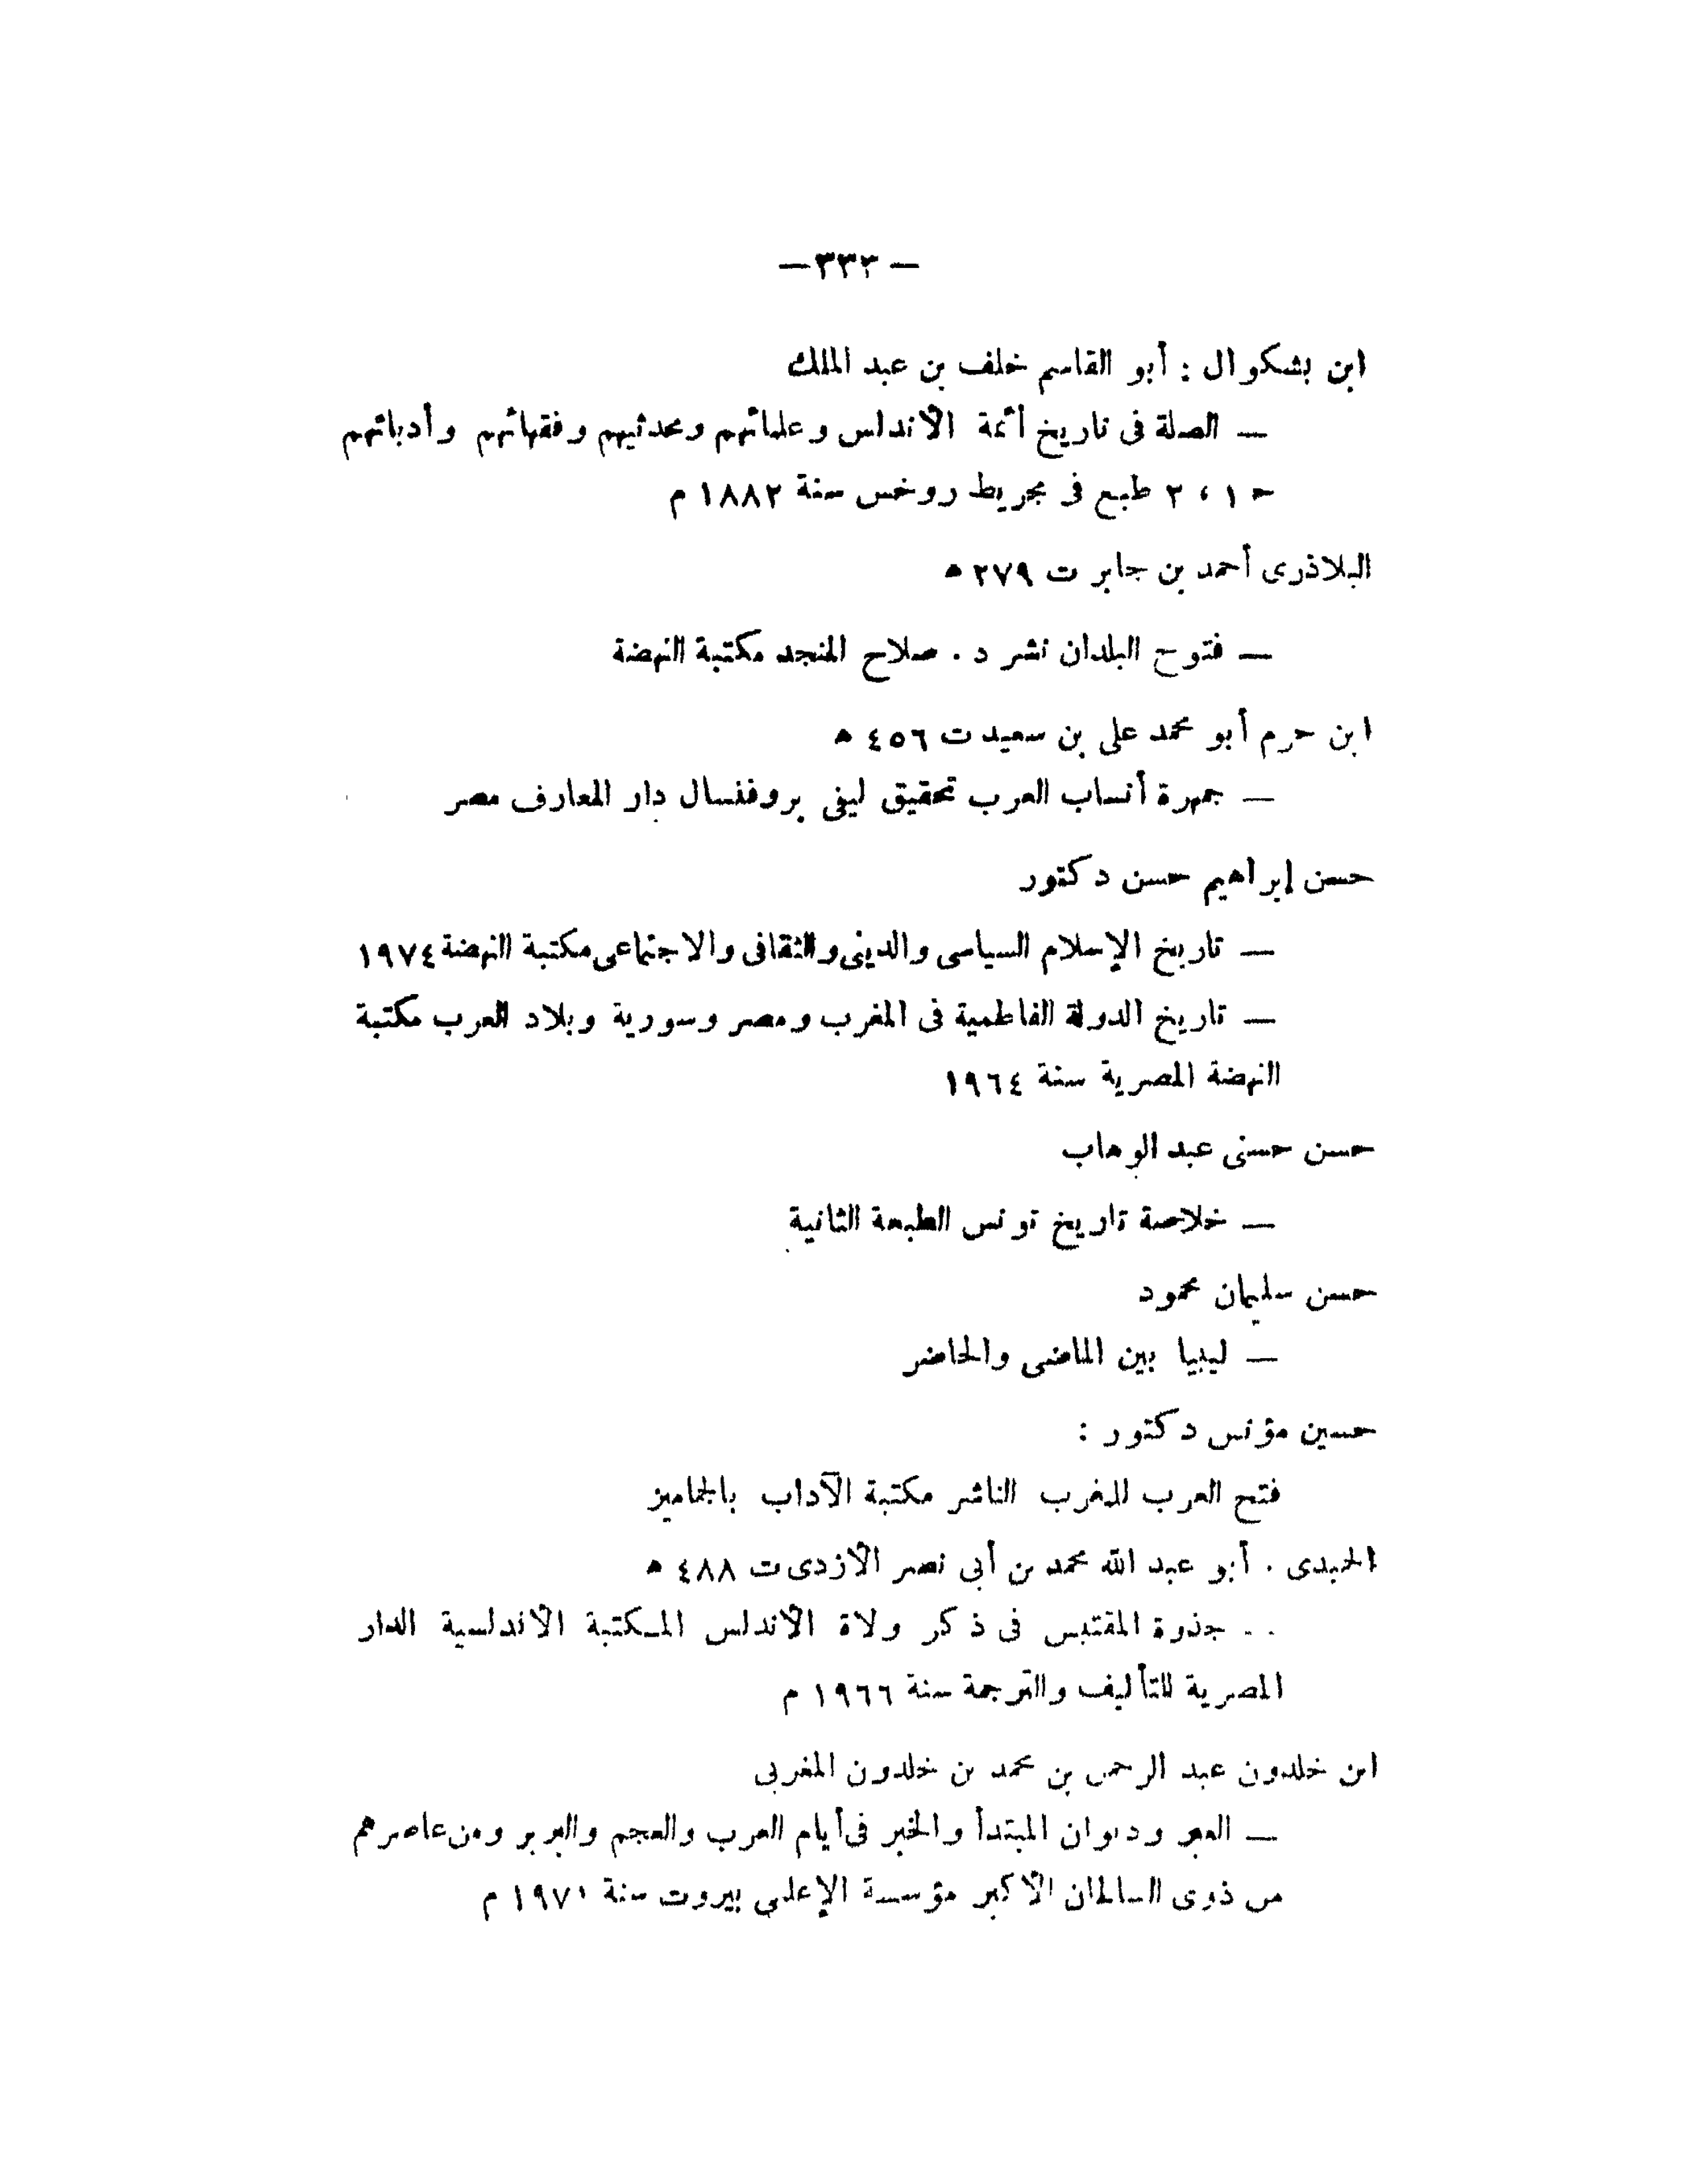 — ٣٣٢ —
ابن بشكوال : أبو القاسم خلف بن عبد الملك
— الصلة فى تاريخ أئمة الأندلس وعلمائهم ومحدثيهم وفقهائهم وأدبائهم
ح ١ ، ٢ طبع فى مجريط روخس سنة ١٨٨٢ م
البلاذرى أحمد بن جابر ت ٢٧٩ ه
— فتوح البلدان نشر د . صلاح المنجد مكتبة النهضة
ابن حرم أبو محمد على بن سعيد ت ٤٥٦ ه
— جمهرة أنساب العرب تحقيق ليفى بروفنسال دار المعارف مصر
حسن إبراهيم حسن دكتور
— تاريخ الإسلام السياسى والدينى والثقافى والاجتماعى مكتبة النهضة ١٩٧٤
— تاريخ الدولة الفاطمية فى المغرب ومصر وسورية وبلاد العرب مكتبة
النهضة المصرية سنة ١٩٦٤
حسن حسنى عبد الوهاب
— خلاصة تاريخ تونس الطبعة الثانية
حسن سليمان محمود
— ليبيا بين الماضى والحاضر
حسين مؤنس دكتور :
فتح العرب للمغرب الناشر مكتبة الآداب بالجماميز
الحميدى . أبو عبد الله محمد بن أبى نصر الأزدى ت ٤٨٨ ه
— جذوة المقتبس فى ذكر ولاة الأندلس المكتبة الأندلسية الدار
المصرية للتأليف والترجمة سنة ١٩٦٦ م
ابن خلدون عبد الرحمن بن محمد بن خلدون المغربى
— العبر وديوان المبتدأ والخبر فى أيام العرب والعجم والبربر ومن عاصرهم
من ذوى السلطان الأكبر مؤسسة الإعلمى بيروت سنة ١٩٧١ م